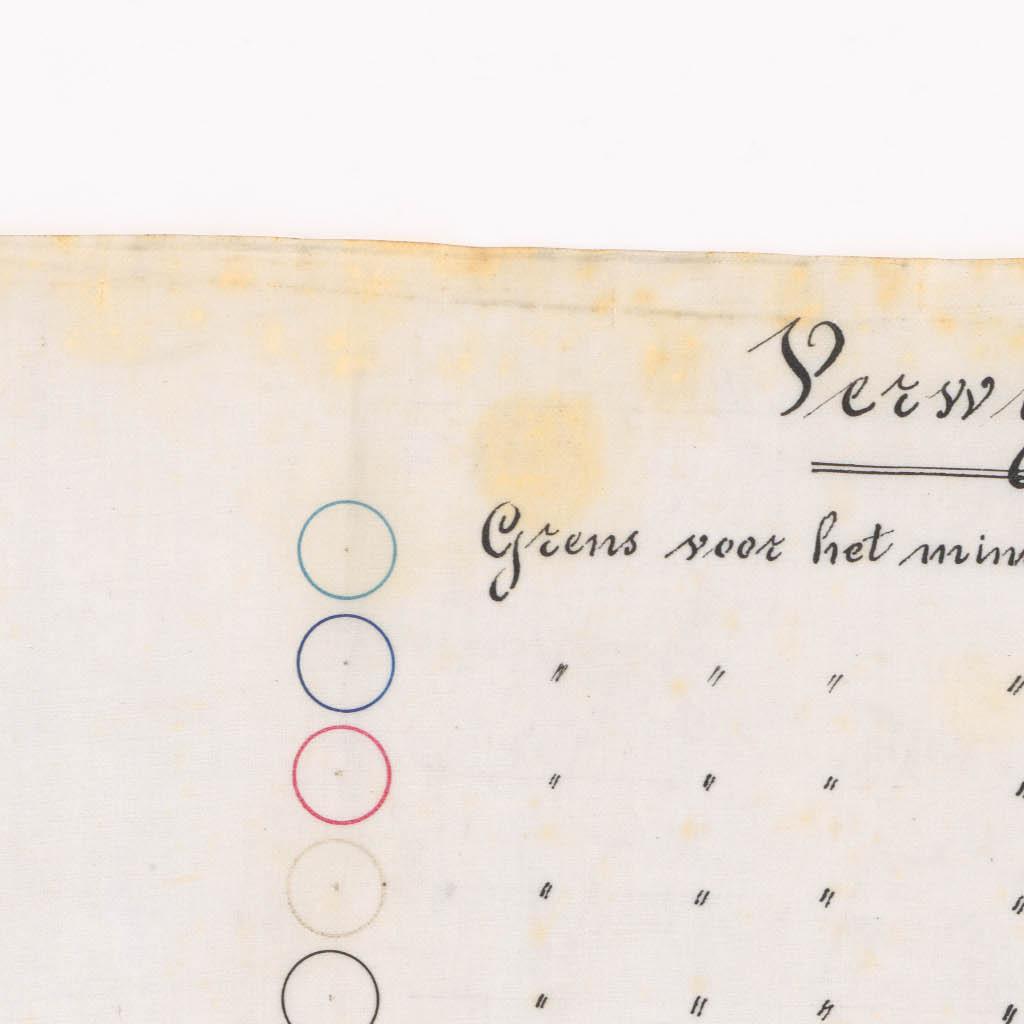 Verw
Grens voor het min
" " " "
" " " "
" " " "
" " " "